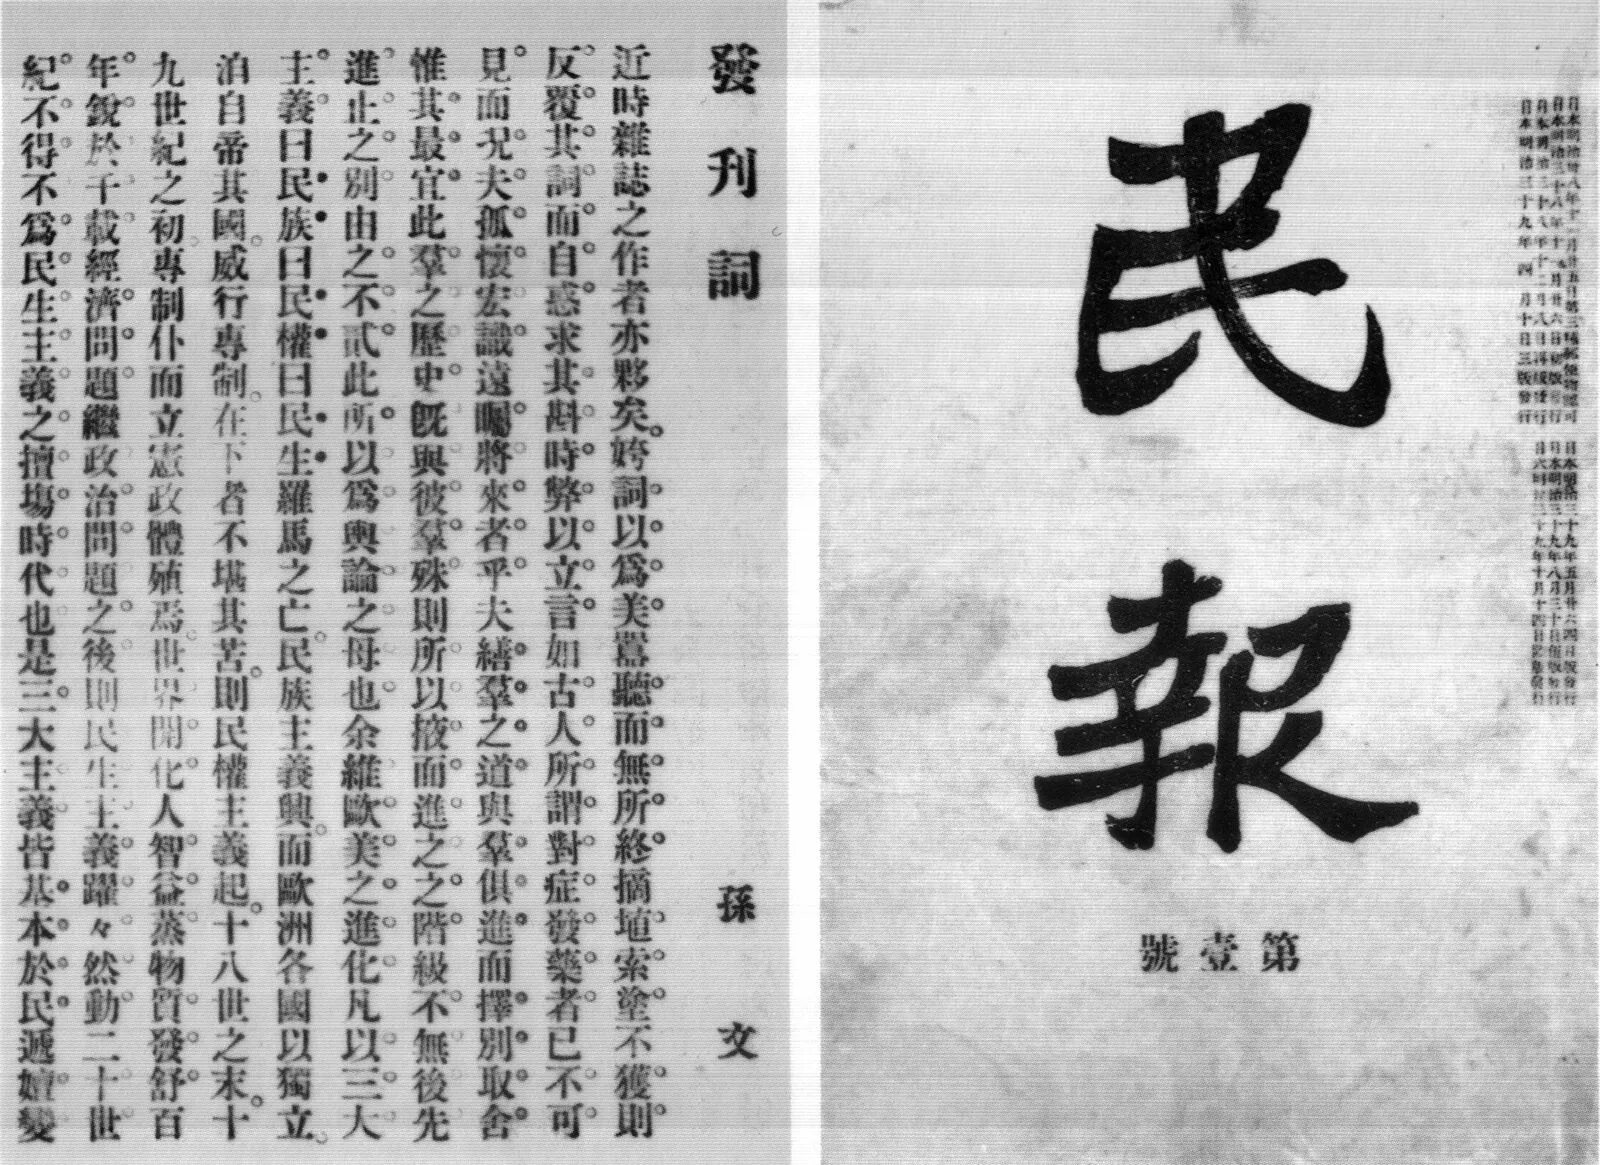 日本明治三十九年四月十日三版發行
民報
第壹號
發刊詞
孫文
近時雜誌之作者亦夥矣姱詞以爲美囂聽而無所終摘埴索塗不獲則
反覆其詞而自惑求其斟時弊以立言如古人所謂對症發藥者已不可
見而況夫孤懷宏識遠矚將來者乎夫繕羣之道與羣俱進而擇別取舍
惟其最宜此羣之歷史旣與彼羣殊則所以掖而進之之階級不無後先
進止之別由之不貳此所以爲輿論之母也余維歐美之進化凡以三大
主義曰民族曰民權曰民生羅馬之亡民族主義興而歐洲各國以獨立
洎自帝其國威行專制在下者不堪其苦則民權主義起十八世之末十
九世紀之初專制仆而立憲政體殖焉世界開化人智益蒸物質發舒百
年銳於千載經濟問題繼政治問題之後則民生主義躍々然動二十世
紀不得不爲民生主義之擅塲時代也是三大主義皆基本於民遞嬗變